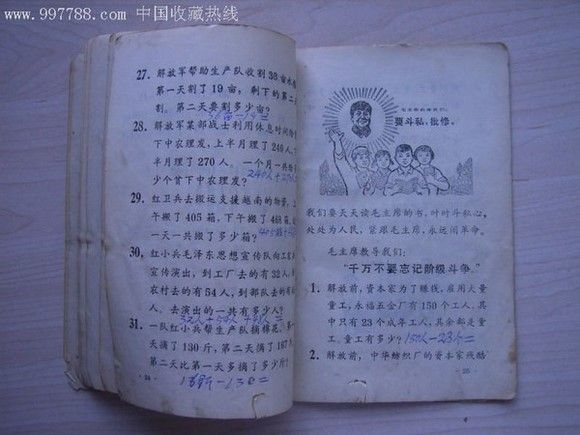 www.997788.com 中国收藏热线
27. 解放军帮助生产队收割38亩水
第一天割了19亩，剩下的第二天
割。第二天要割多少亩？
38亩-19=
28. 解放军某部战士利用休息时间给
下中农理发，上半月理了240人，
半月理了270人。一个月一共给
少个贫下中农理发？
240人+270
29. 红卫兵去搬运支援越南的物资，上
午搬了405箱，下午搬了
天一共搬了多少箱？
30. 红小兵毛泽东思想宣传队向工农
宣传演出，到工厂去的有32人，
农村去的有54人，到部队去的有
人。去演出的一共有多少人？
31. 一队红小兵帮生产队摘棉花。第一
天摘了130斤，第二天摘了
第二天比第一天多摘了多少斤？
-130=
·24·
要斗私，批修。
我们要天天读毛主席的书，时时斗私心，
处处为人民，紧跟毛主席，永远闹革命。
毛主席教导我们：
“千万不要忘记阶级斗争。”
1. 解放前，资本家为了赚钱，雇用大量
童工，永福五金厂有150个工人，其
中只有23个成年工人，其余都是童
工。童工有多少？ 150人-23个=
2. 解放前，中华纺织厂的资本家残酷
·25·